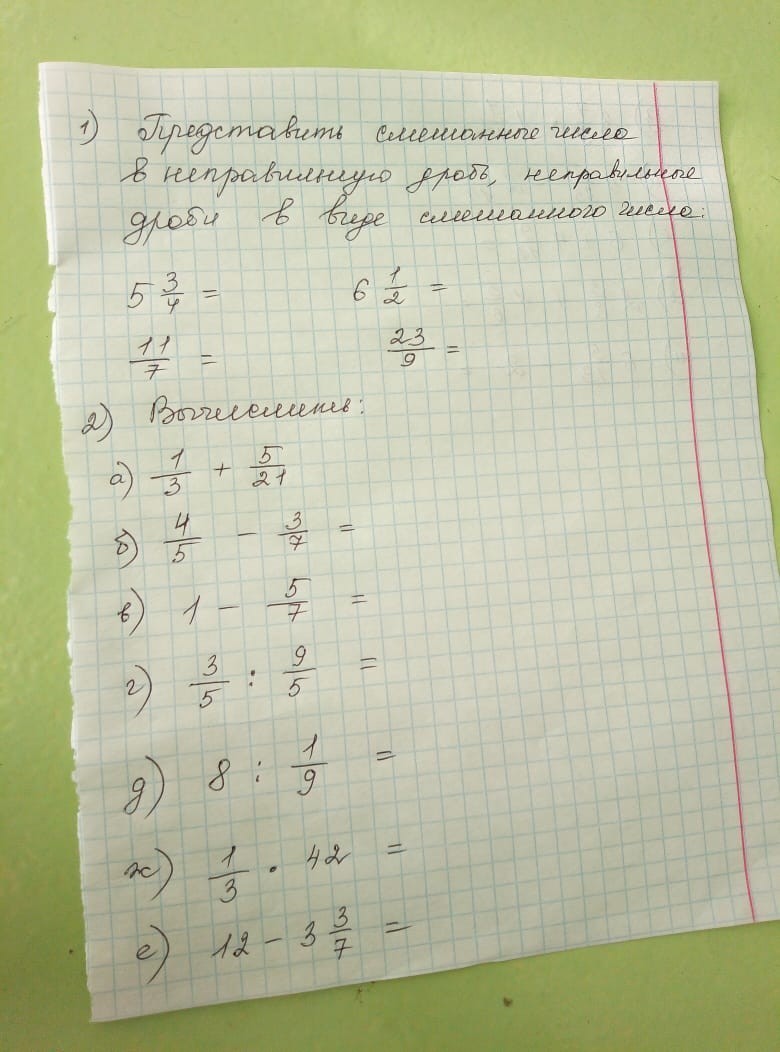 1) Представить смешанные числа
в неправильную дробь, неправильные
дроби в виде смешанного числа:
5 3/4 = 6 1/2 =
11/7 = 23/9 =
2) Вычислить:
а) 1/3 + 5/21
б) 4/5 - 3/7 =
в) 1 - 5/7 =
г) 3/5 : 9/5 =
д) 8 : 1/9 =
ж) 1/3 · 42 =
е) 12 - 3 3/7 =